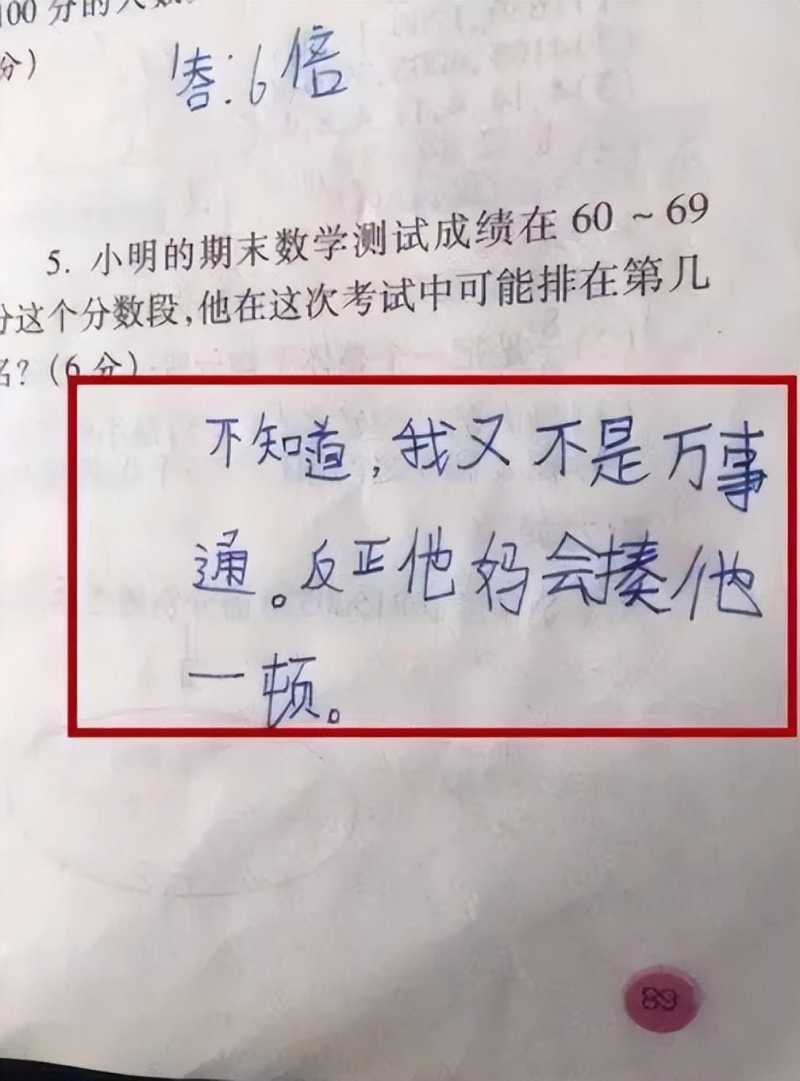 100 分的人数
分)
答:6倍
5. 小明的期末数学测试成绩在 60 ~ 69
分这个分数段,他在这次考试中可能排在第几
名?(6 分)
不知道,我又不是万事
通。反正他妈会揍他
一顿。